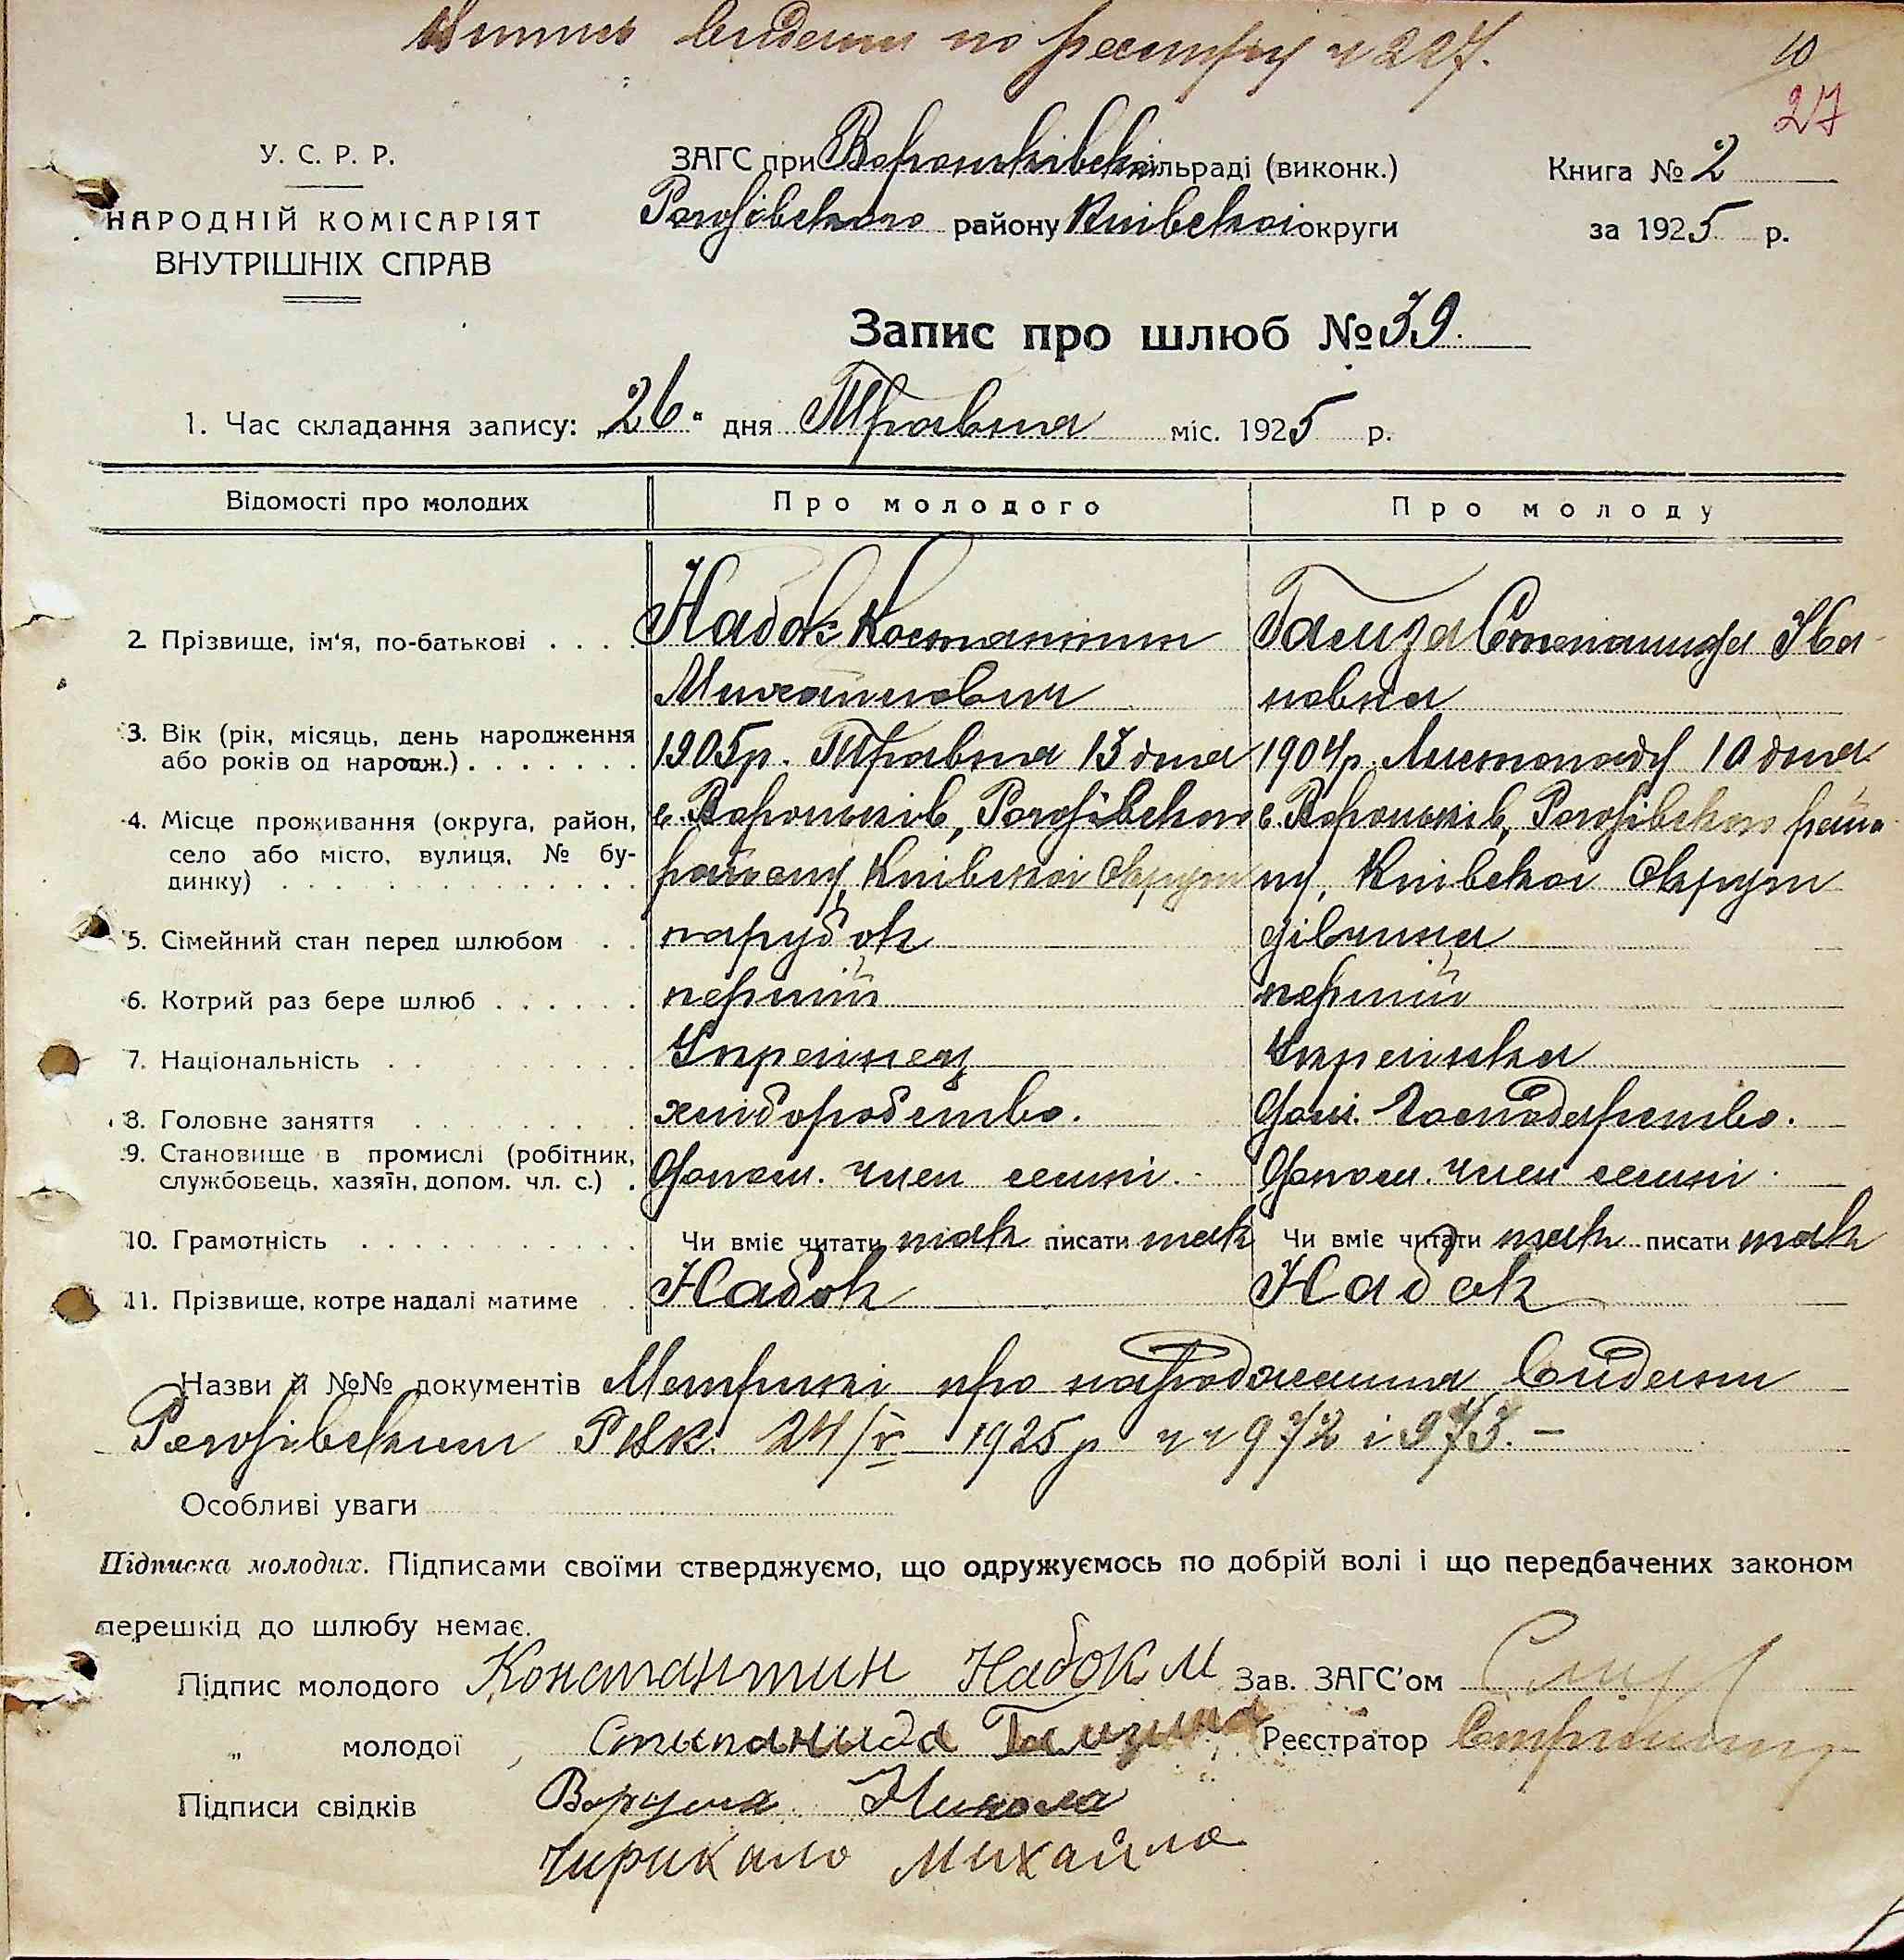 Випись видана по реєстру ч 227.
10
27
У. С. Р. Р.
НАРОДНІЙ КОМІСАРІЯТ
ВНУТРІШНІХ СПРАВ
ЗАГС при Вороньківській сільраді (виконк.)
Рогозівського району Київської округи
Книга № 2
за 1925 р.
Запис про шлюб № 39.
1. Час складання запису: „26" дня Травня міс. 1925 р.
Відомості про молодих Про молодого Про молоду
2. Прізвище, ім'я, по-батькові Набок Костантин Гамза Степанида Іва-
Михайлович новна
3. Вік (рік, місяць, день народження або років од народж.) 1905р. Травня 13 дня 1904р. Листопаду 10 дня
4. Місце проживання (округа, район, с. Вороньків, Рогозівського с. Вороньків, Рогозівського райо-
село або місто, вулиця, № бу-
динку) району, Київської Округи ну, Київської Округи
5. Сімейний стан перед шлюбом парубок дівчина
6. Котрий раз бере шлюб перший перший
7. Національність Українец Українка
8. Головне заняття хліборобство. Дом. Господарство.
9. Становище в промислі (робітник,
службовець, хазяїн, допом. чл. с.) Допом. член семні. Допом. член семні.
10. Грамотність Чи вміє читати так писати так Чи вміє читати так писати так
11. Прізвище, котре надалі матиме Набок Набок
Назви й №№ документів Метрики про народження видані
Рогозівським РВК. 24/V 1925 р чч 972 і 973. –
Особливі уваги
Підписка молодих. Підписами своїми стверджуємо, що одружуємось по добрій волі і що передбачених законом
перешкід до шлюбу немає.
Підпис молодого Константин Набок М Зав. ЗАГС'ом
„ молодої Стипанида Реєстратор
Підписи свідків Микола
Чирикало Михайло